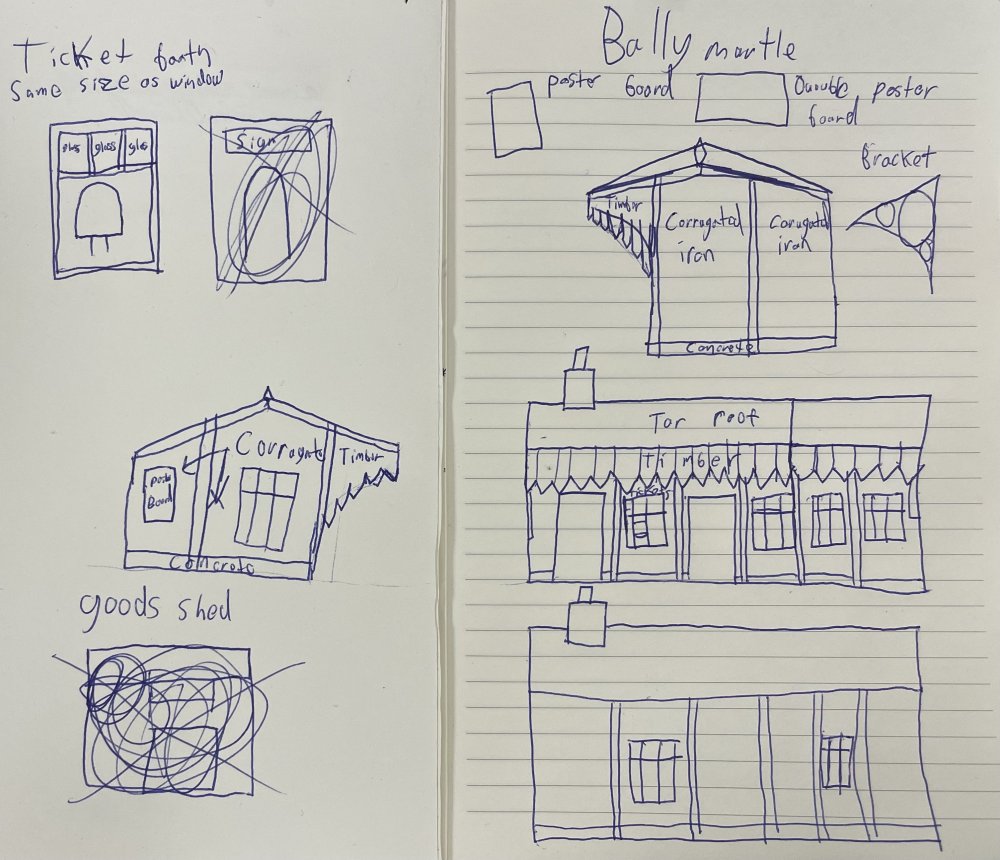 Ticket footh
Same size as window
glass glass glas
Sign
Corrugate
Timber
Poster
Board
Concrete
goods shed
Bally mantle
poster board
Duouble poster
board
Bracket
Timber
Corrugated
iron
Corugated
iron
Concrete
Tar roof
timber
Tickets